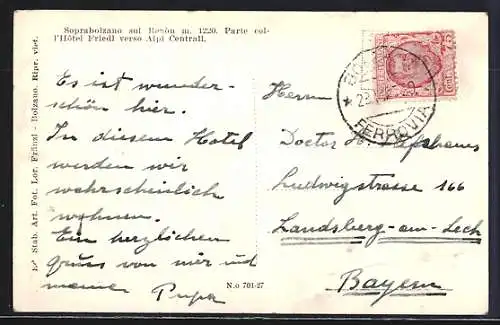 Soprabolzano sul Renòn m. 1220. Parte col-
l'Hôtel Friedl verso Alpi Centrali.
Es ist wunder-
schön hier.
In diesem Hotel
werden wir
wahrscheinlich
wohnen.
Ein herzlichen
Gruss von mir und
meine
Stab. Art. Fot. Lor. Fränzl - Bolzano. Ripr. viet.
N.o 701-27
FERROVIA
75
Cent.
Herrn
Doctor H.
Ludwigstrasse 166
Landsberg-am-Lech
Bayern